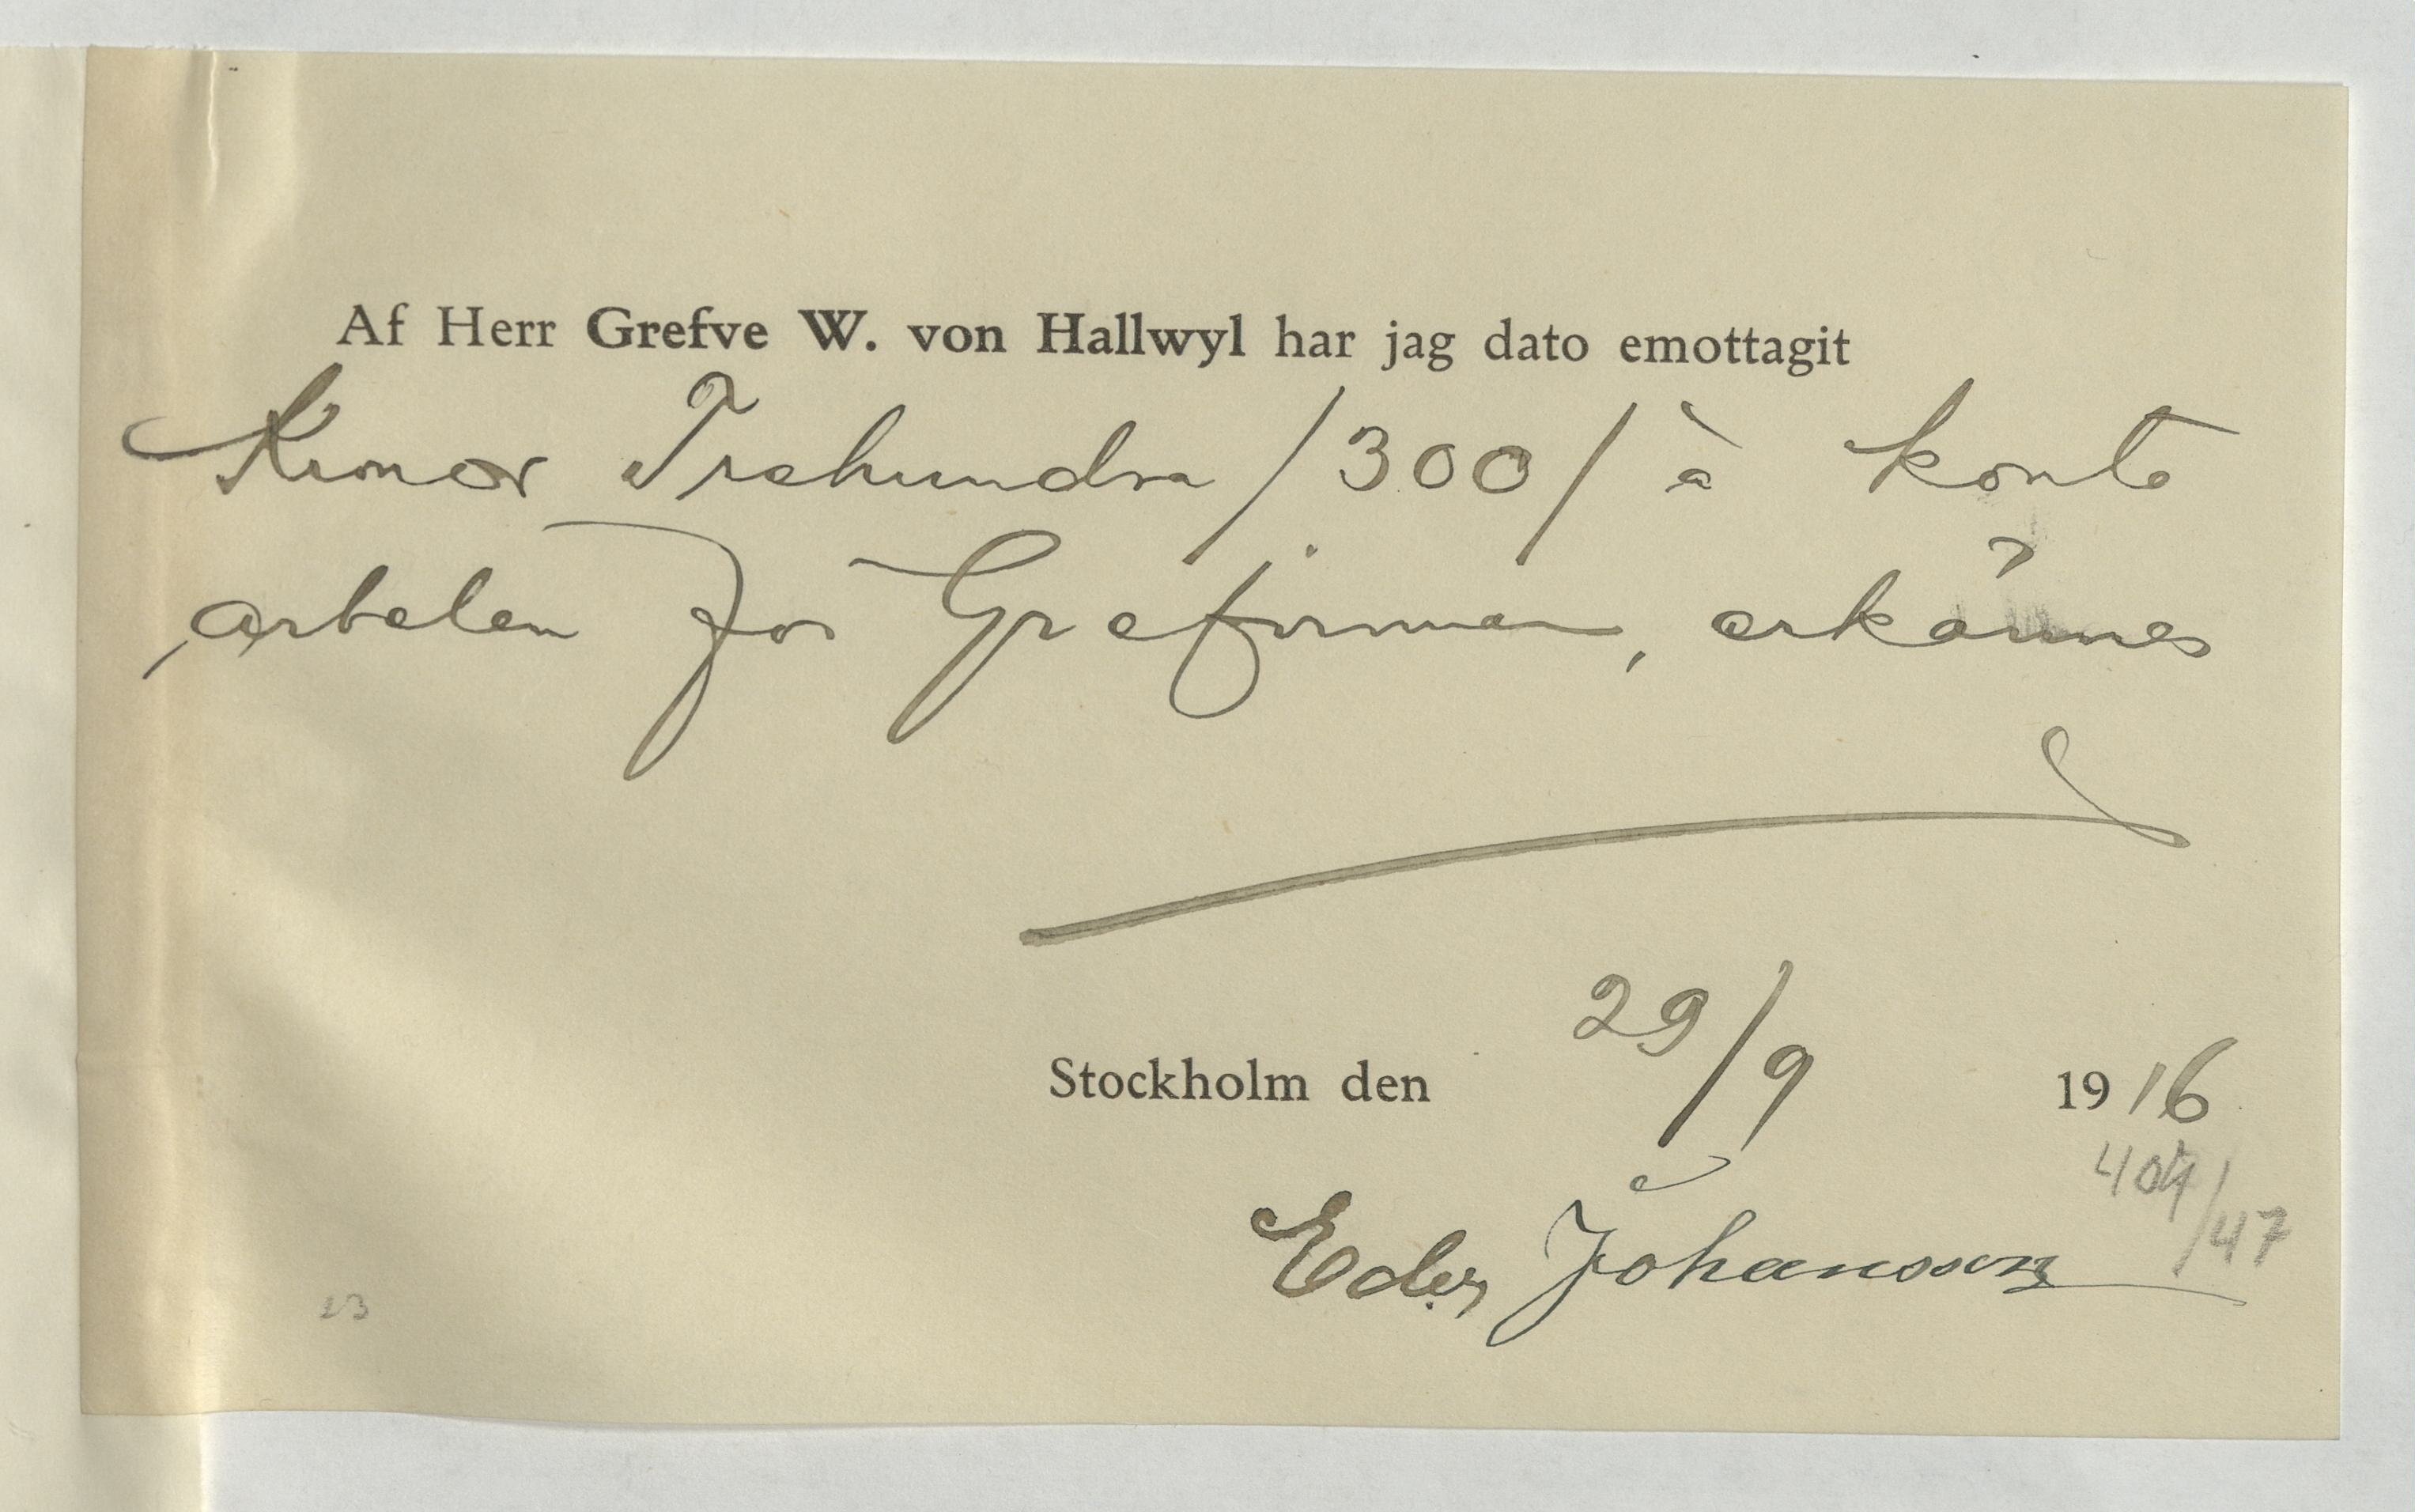 Af Herr Grefve W. von Hallwyl har jag dato emottagit
Kronor Trehundra /300/ à konto
arbeten för Grefvinnan, erkännes
Stockholm den 29/9 1916
Johansson
/47
23